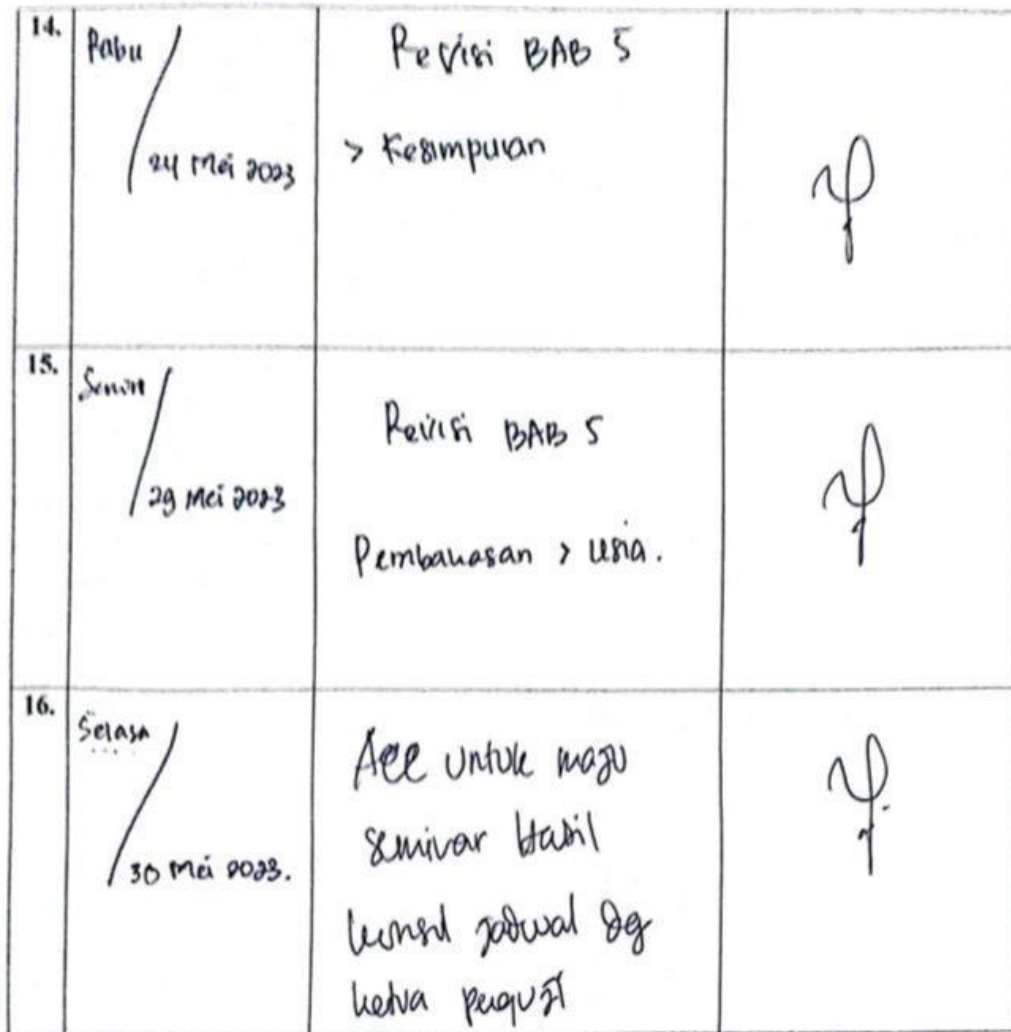 14.
Rabu
24 Mei 2023
Revisi BAB 5
> Kesimpulan
15.
Senin
29 Mei 2023
Revisi BAB 5
Pembahasan > usia.
16.
Selasa
30 Mei 2023.
Acc untuk maju
seminar Hasil
konsul jadwal dg
ketua penguji